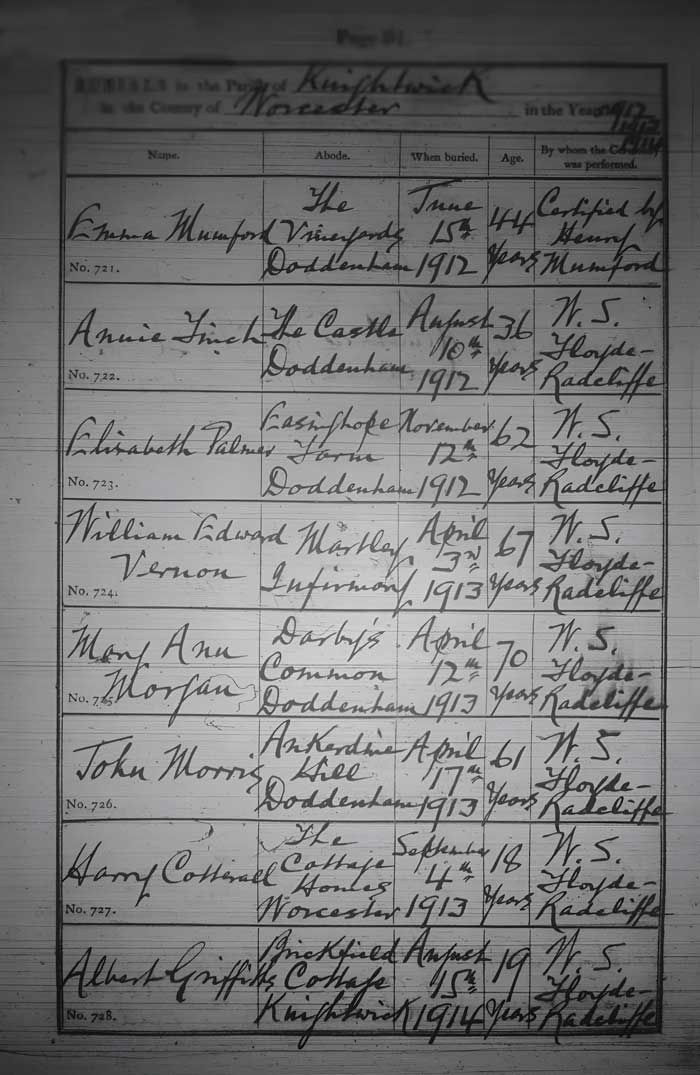 Page 91.
BURIALS in the Parish of Knightwick
in the County of Worcester in the Year 1912
1913
1914
Name. Abode. When buried. Age. By whom the Ceremony was performed.
Emma Mumford The Vineyards Doddenham June 15th 1912 44 Years Certified by Henry Mumford
No. 721.
Annie Finch The Castle Doddenham August 10th 1912 36 Years W. S. Floyde-Radcliffe
No. 722.
Elizabeth Palmer Easinghope Farm Doddenham November 12th 1912 62 Years W. S. Floyde-Radcliffe
No. 723.
William Edward Vernon Martley Infirmary April 3rd 1913 67 Years W. S. Floyde-Radcliffe
No. 724.
Mary Ann Morgan Darby's Common Doddenham April 12th 1913 70 Years W. S. Floyde-Radcliffe
No. 725.
John Morris Ankerdine Hill Doddenham April 17th 1913 61 Years W. S. Floyde-Radcliffe
No. 726.
Harry Cotterall The Cottage Homes Worcester September 4th 1913 18 Years W. S. Floyde-Radcliffe
No. 727.
Albert Griffiths Brickfield Cottage Knightwick August 15th 1914 19 Years W. S. Floyde-Radcliffe
No. 728.